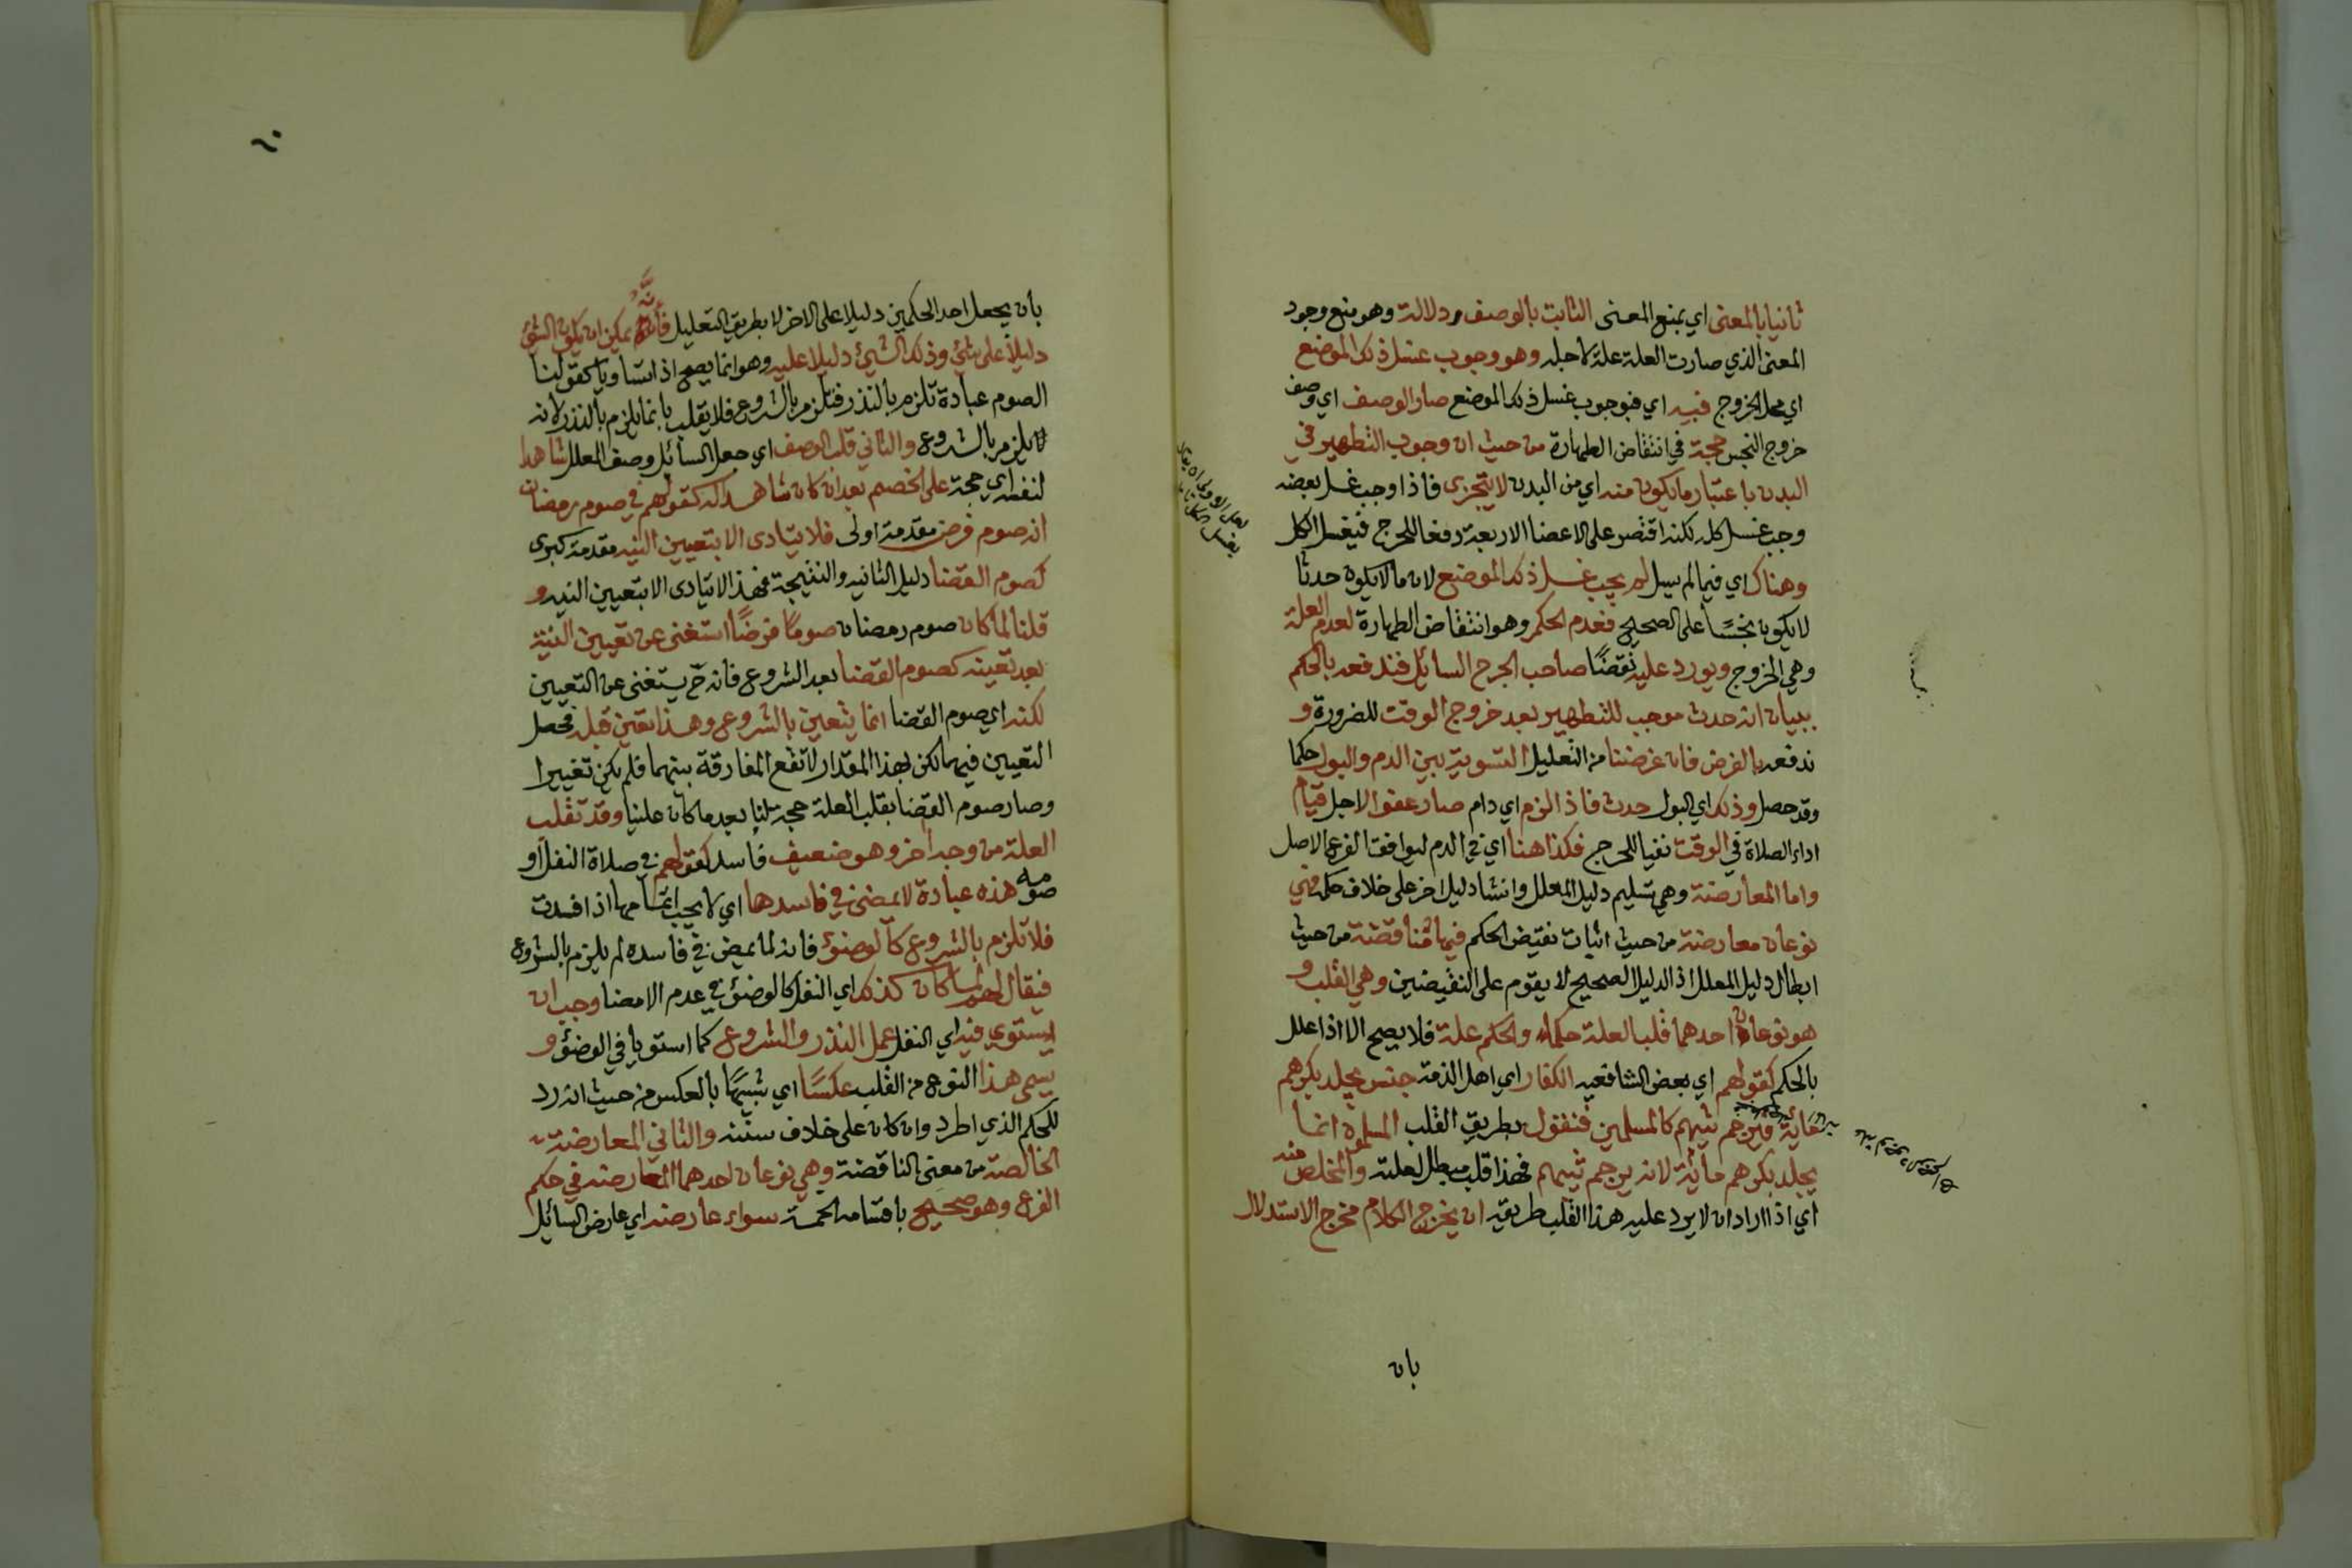 ثانيا بالمعنى اي بمنع المعنى الثابت بالوصف دلالة وهو منع وجود
المعنى الذي صارت العلة علة لاجله وهو وجوب غسل ذلك الموضع
اي محل الخروج فبه اي فبوجوب غسل ذلك الموضع صار الوصف اي وصف
خروج النجس حجة في انتقاض الطهارة من حيث ان وجوب التطهير في
البدن باعتبار ما يكون منه اي من البدن لا يتجزى فاذا وجب غسل بعضه
وجب غسل كله لكنه اقتصر على الاعضا الاربعة دفعا للحرج فيغسل الكل
وهناك اي فيما لم يسل لم يجب غسل ذلك الموضع لان ما لا يكون حدثا
لا يكون نجسًا على الصحيح فعدم الحكم وهو انتقاض الطهارة لعدم العلة
وهي الخروج ويورد عليه نقضًا صاحب الجرح السائل فندفعه بالحكم
ببيان انه حدث موجب للتطهير بعد خروج الوقت للضرورة و
ندفعه بالغرض فان غرضنا من التعليل التسوية بين الدم والبول حكما
وقد حصل وذلك اي البول حدث فاذا لزم اي دام صار عفوا لاجل قيام
اداء الصلاة في الوقت نفيا للحرج فكذا هنا اي في الدم ليوافق الفرع الاصل
واما المعارضة وهي تسليم دليل المعلل وانشا دليل اخر على خلاف حكمه فهي
نوعان معارضة من حيث اثبات نقيض الحكم فيها مناقضة من حيث
ابطال دليل المعلل اذ الدليل الصحيح لا يقوم على النقيضين وهي القلب و
هو نوعان احدهما قلب العلة حكما والحكم علة فلا يصح الا اذا علل
بالحكم كقولهم اي بعض الشافعيه الكفار اي اهل الذمة جنس يجلد بكرهم
مائة فيرجم ثيبهم كالمسلمين فنقول بطريق القلب المسلمون انما
يجلد بكرهم مائة لانه يرجم ثيبهم فهذا قلب مبطل لعلته والمخلص منه
اي اذا اراد ان لا يرد عليه هذا القلب طريقة ان يخرج الكلام مخرج الاستدلال
بان
بان يجعل احد الحكمين دليلا على الاخر لا بطريق التعليل فانه يمكن ان يكون الشئ
دليلا على شئ وذلك الشيئ دليلا عليه وهو انما يصح اذا تساويا كقولنا
الصوم عبادة تلزم بالنذر فتلزم بالشروع فلا يقلب بانما يلزم بالنذر لانه
يلزم بالشروع والثاني قلب الوصف اي جعل السائل وصف المعلل شاهدا
لنفسه اي حجة على الخصم بعد ان كان شاهدا له كقولهم في صوم رمضان
انه صوم فرض مقدمة اولى فلا يتادى الا بتعيين النيه مقدمة كبرى
كصوم القضا دليل الثانيه والنتيجة فهذا لا يتادى الا بتعيين النيه و
قلنا لما كان صوم رمضان صومًا فرضًا استغنى عن تعيين النية
بعد تعينه كصوم القضا بعد الشروع فانه ح يستغنى عن التعيين
لكنه اي صوم القضا انما يتعين بالشروع وهذا تعين قبله فحصل
التعيين فيهما لكن بهذا المقدار لا تقع المفارقة بينهما فلم يكن تغييرا
وصار صوم القضا بقلب العلة حجة لنا بعد ما كان علينا وقد تقلب
العلة من وجه اخر وهو ضعيف فاسد كقولهم في صلاة النفل او
صومه هذه عبادة لا يمضى في فاسدها اي لا يجب اتمامها اذا فسدت
فلا تلزم بالشروع كالوضوء فانه لما لم يمض في فاسده لم يلزم بالشروع
فيقال لهم لما كان كذلك اي النفل كالوضوء في عدم الامضا وجب ان
يستوي فيه اي النفل عمل النذر والشروع كما استويا في الوضوء و
يسمى هذا النوع من القلب عكسًا اي شبيهًا بالعكس من حيث انه رد
للحكم الذي اطرد وان كان على خلاف سننه والثاني المعارضة
الخالصة من معنى المناقضة وهي نوعان احدهما المعارضه في حكم
الفرع وهو صحيح باقسامه الخمسة سواء عارضه اي عارض السائل